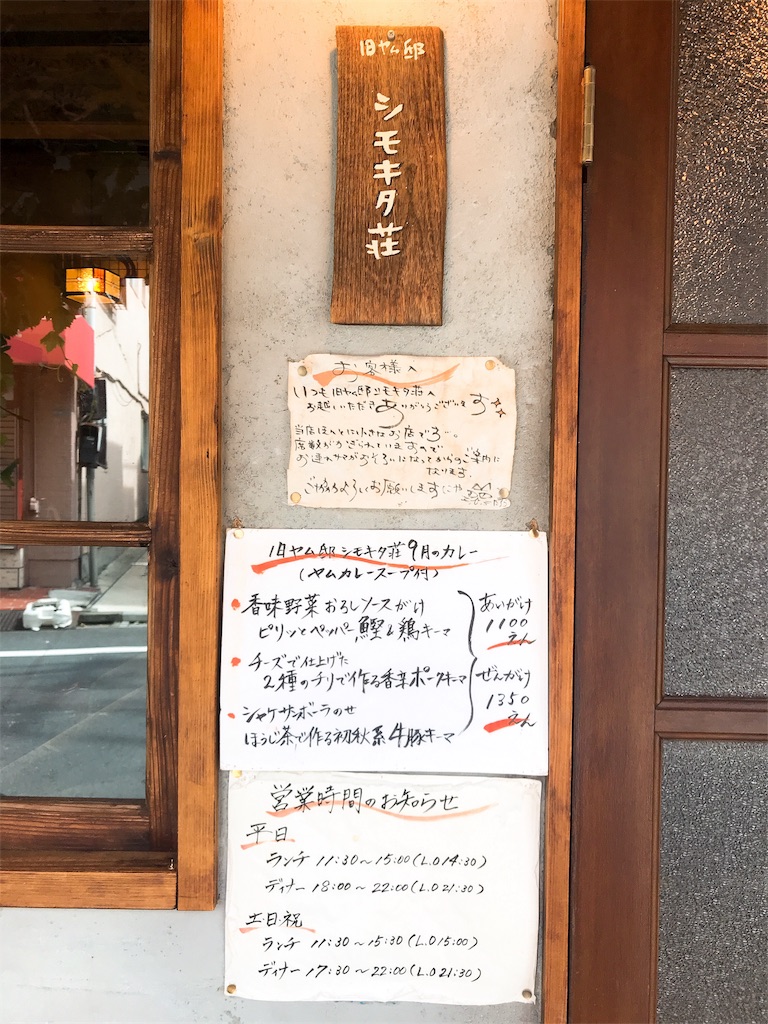 旧ヤム邸
シモキタ荘
お客様へ
いつも旧ヤム邸シモキタ荘へ
お越しいただきありがとうございます
当店ほんとに小さなお店でして。
席数がかぎられていますので
お連れサマがおそろいになってからのご案内に
なります。
ご協力よろしくお願いしますにゃ
旧ヤム邸シモキタ荘9月のカレー
(ヤムカレースープ付)
・香味野菜おろしソースがけ
ピリッとペッパー鰹と鶏キーマ
・チーズで仕上げた
2種のチリで作る香辛ポークキーマ
・シャケサンボーラのせ
ほうじ茶で作る初秋系牛豚キーマ
あいがけ
1100
えん
ぜんがけ
1350
えん
営業時間のお知らせ
平日
ランチ 11:30〜15:00(L.O 14:30)
ディナー 18:00〜22:00(L.O 21:30)
土・日・祝
ランチ 11:30〜15:30(L.O 15:00)
ディナー 17:30〜22:00(L.O 21:30)